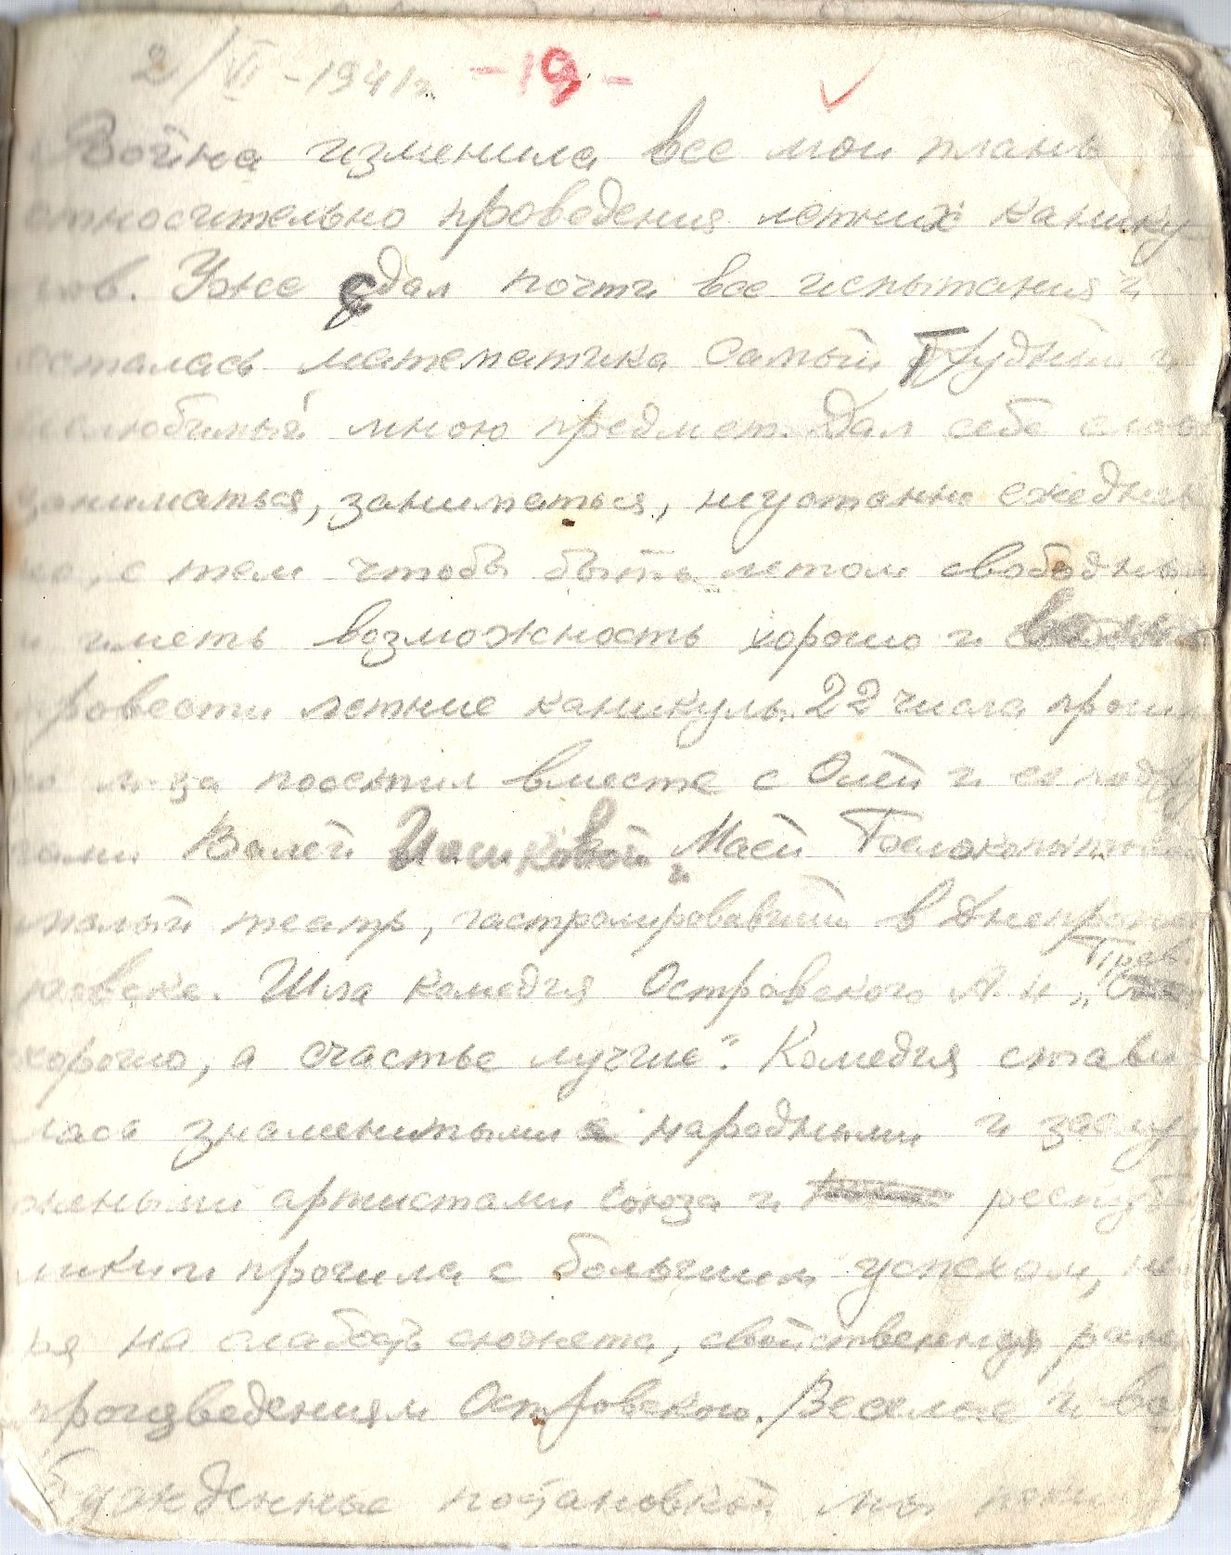 2/VI-1941г. -19-
Война изменила все мои планы
относительно проведения летних канику-
лов. Уже сдал почти все испытания и
осталась математика самый трудный и
нелюбимый мною предмет. Дал себе слово
заниматься, заниматься, неустанно ежеднев-
но, с тем чтобы быть летом свободным
и иметь возможность хорошо и
провести летние каникулы. 22 числа прош-
посетил вместе с Олей и ее подру-
гами Валей Иашковой и Маей Белокопытовой
малый театр, гастролировавший в Днепропет-
ровске. Шла комедия Островского А.Н „Прав.
хорошо, а счастье лучше". Комедия стави-
лась знаменитыми народными и заслу-
жеными артистами союза и респуб-
лики и прошла с большим успехом, не
ря на слабость сюжета, свойственную ран
произведениям Островского. Веселые и воз
бужденные постановкой мы